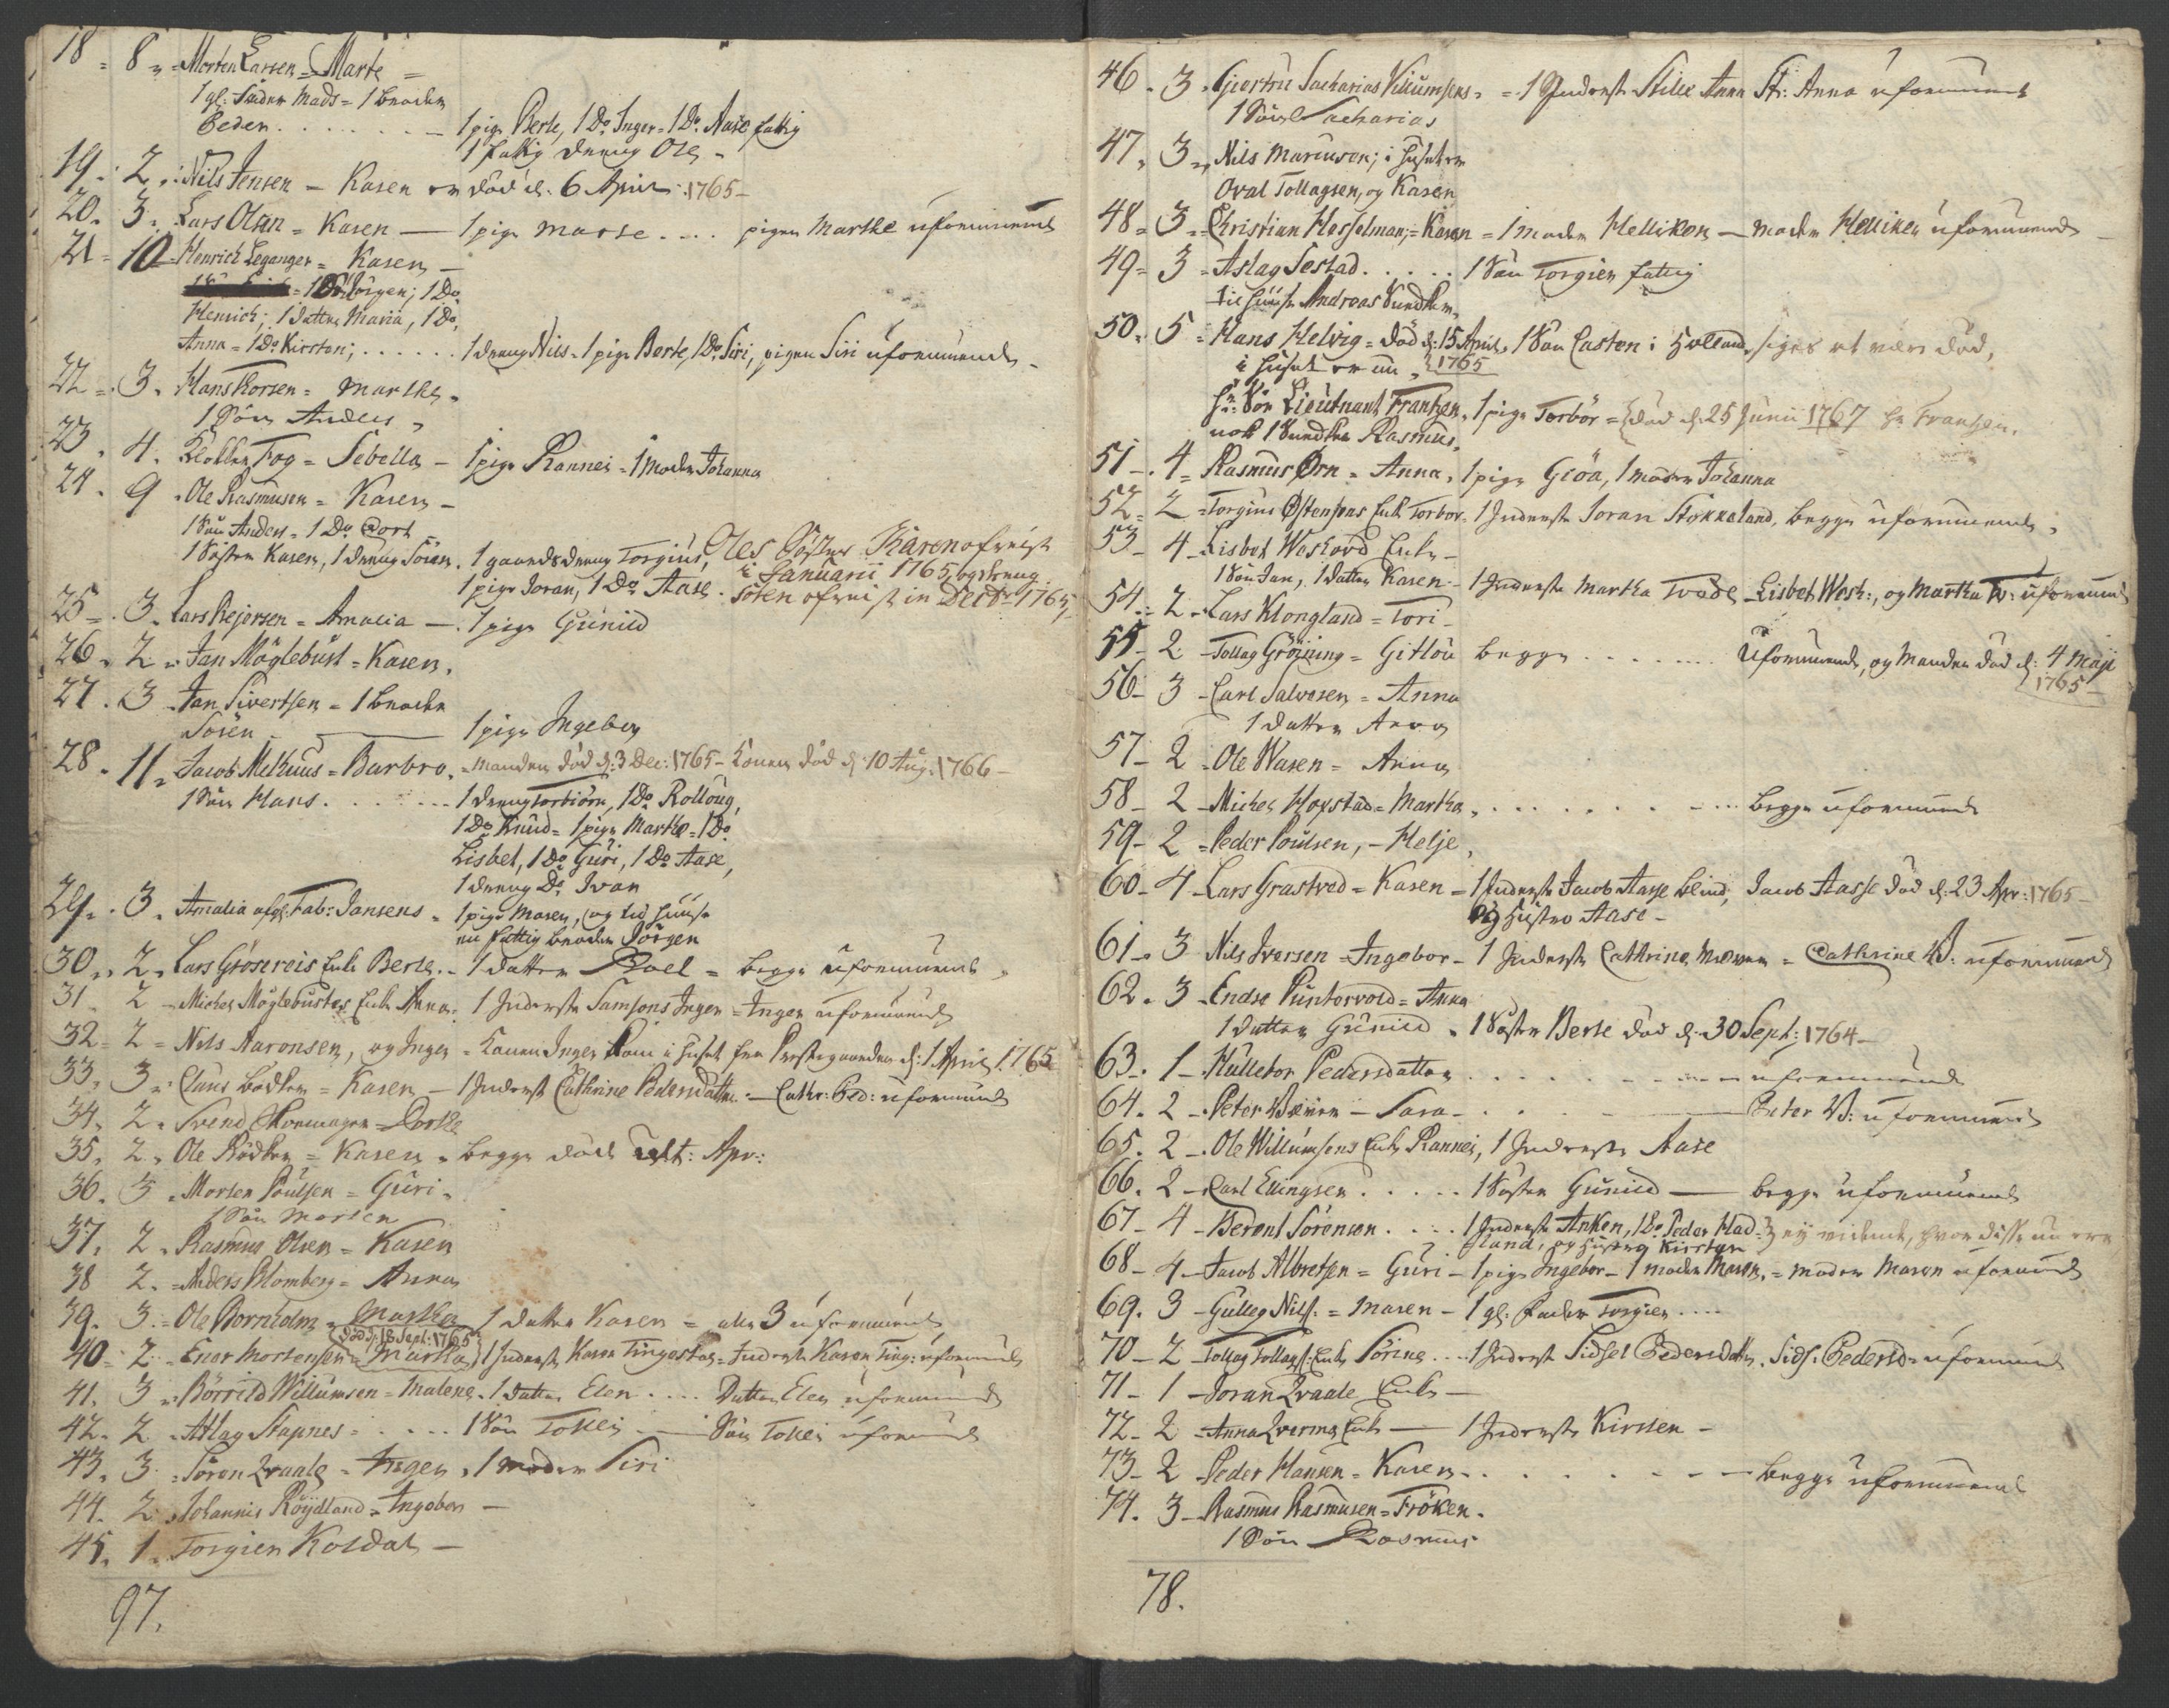 18 = 8 = Morten Larsen = Marte =
1 gl: fader Mads = 1 broder
Peder. . . . . . . . — 1 pige Berte, 1 Do Inger = 1 Do Aase fattig
1 fattig dreng Ole -
19. 2. Nils Jensen — Karen er død d. 6 April 1765 —
20. 3. Lars Olsen = Karen — 1 pige Marte .... pigen Marthe uformuend
21 = 10 Henrich Leganger = Karen —
= 1 Do Jörgen; 1 Do
Henrich; 1 datter Maria, 1 Do
Anna = 1 Do Kirsten; . . . . . . 1 dreng Nils = 1 pige Berte, 1 Do Siri, pigen Siri uformuende -
22 = 3. Hans Torsen = Marthe.
1 Sön Anders,
23. 4. Klokker Fog = Sebella — 1 pige Rannei = 1 moder Johanna
24. 9. Ole Rasmusen = Karen —
1 Sön Anders = 1 Do Cort
1 Söster Karen, 1 dreng Sören, 1 gaardsdreng Torgius, Oles Söster Karen afreist
i Januarii 1765, og dreng
1 pige Joran, 1 Do Aase. Sören afreist in Decbr 1765,
25 = 3. Lars Rejersen = Amalia — 1 pige Gunild
26. 2. Jan Möglebust = Karen,
27. 3 Jan Sivertsen = 1 broder
Sören — 1 pige Ingebor
28. 11. Jacob Melhuus = Barbro. = manden död d. 3 Dec: 1765 - Konen död d. 10 Aug. 1766 —
1 Sön Hans. . . . . . . . 1 dreng Torbiörn, 1 Do Rolloug,
1 Do Knud = 1 pige Marthe = 1 Do
Lisbet, 1 Do Guri, 1 Do Aase,
1 dreng Do Ivar
29. 3. Amalia afg: Fab: Jansens = 1 pige Maren, og til huuse
en fattig broder Jörgen
30. 2. Lars Grösereis Enke Berte. - 1 datter Boel = begge uformuende,
31. 2 — Michel Möglebustes Enke Anna. 1 Inderste Samsons Inger = Inger uformuende
32 = 2 = Nils Aaronsen, og Inger = Konen Inger kom i huset fra Prestegaarden d. 1 April 1765
33. 3. Claus Bödker = Karen — 1 Inderste Cathrine Pedersdatter — Cathr: Ped: uformuend
34. 2. Svend = Dorthe
35. 2. Ole Rödker = Karen = begge döde ult: Apr:
36. 3 = Morten Poulsen = Guri.
1 Sön Morten
37. 2. Rasmus Olsen = Karen
38 2. = Anders Blomberg = Anna
39. 3. = Ole Bornholm = Martha 1 datter Karen = alle 3 uformuende
död d. 18 Sept: 1765
40 = 2. = Enor Mortensen = Martha 1 Inderste Karen Tingostad = Inderste Karen Ting: uformuende
41. 3 = Börrild Willumsen = Malene. 1 datter Elen .... Datter Elen uformuend
42. 2. Atlag Stapnes = . . . . 1 Sön Tollei — Sön Tollei uformuend
43. 3. = Sören Qvaale = Inger, 1 moder Siri
44. 2. Johannis Röydland = Ingebor —
45. 1. Torgier Koldal —
97.
46. 3. Giertru Sacharias Villumsens. = 1 Inderste Stille Anna St: Anna uformuend
1 Sön Sacharias
47. 3. Nils Mariuson; i huset er
Oval Tollagsen, og Karen
48 = 3 = Christian Hesselman; = Karen = 1 moder Helliken — moder Helliken uformuend
49 = 3 = Aslag Sestad. . . . . . 1 Sön Torgier fattig
til huuse Andreas Kundker.
50. 5 = Hans Helvig = död d: 15 April 1 Sön Casten i Holland, siges at være död,
i huset er nu 1765
hr: Sön Lieutnant Frantzen, 1 pige Torbör = död d. 25 Junii 1767 hr Frantzen.
nok 1 Rasmus,
51 - 4 = Rasmus Örn = Anna, 1 pige Giöa, 1 moder Johanna
52 = 2 = Torgius Östensens Enke Torbor = 1 Inderste Joran Stokkeland, begge uformuende,
53 - 4 = Lisbet Weskord Enke —
1 Sön Jan, 1 datter Karen - 1 Inderste Martha Trode - Lisbet Wesk:, og Martha Tr: uformuend
54. 2 = Lars Klongland = Tori -
55 - 2 - Tollag Gröning = Gitlou begge . . . . . . . Uformuende, og Manden död d: 4 Maji
1765 —
56 - 3 - Carl Salvesen = Anna
1 datter Anna
57 - 2 - Ole Wasen = Anna
58 - 2 - Michel Hopstad = Martha, . . . . . . . begge uformuende
59 - 2 - Peder Poulsen, - Helje,
60 - 4 - Lars Grastved = Karen = 1 Inderste Jacob Aasse blind, Jacob Aasse död d: 23 Apr: 1765 —
og hustro Aase —
61 - 3 Nils Iversen = Ingebor - 1 Inderste Cathrine = Cathrine W: uformuend
62. 3 - Endre Puntervold = Anna
1 datter Gunild = 1 Söster Berte död d. 30 Sept: 1764 —
63. 1 - Hulletor Pedersdatter . . . . . . . . uformuende
64. 2 - Peter — Sara — Peter W: uformuend
65. 2 - Ole Willumsens Enke Rannei, 1 Inderste Aase
66. 2 - Carl Ellingsen . . . . . 1 Söster Gunild — begge uformuende
67 - 4 - Berent Sörensen . . . . 1 Inderste Anken, 1 Do Peder Had- ej vidende, hvor disse nu ere
land, og hustro Kirsten
68 - 4 - Jacob Albretsen = Guri - 1 pige Ingebor - 1 moder Maren, = moder Maren uformuend
69. 3 - Gulleg Nils: = Maren - 1 gl: fader Torgier ....
70 - 2 - Tollag Tollags: Enke Sörine ... 1 Inderste Sidsel Pedersdatter, Sids: Pedersd = uformuend
71 - 1 - Joran Qvaale Enke —
72 - 2 - Anna Qverms Enke — 1 Inderste Kirsten —
73 - 2 - Peder Hansen = Karen - . . . . . . . begge uformuende
74. 3 - Rasmus Rasmusen = Fröken.
1 Sön Rasmus
78.